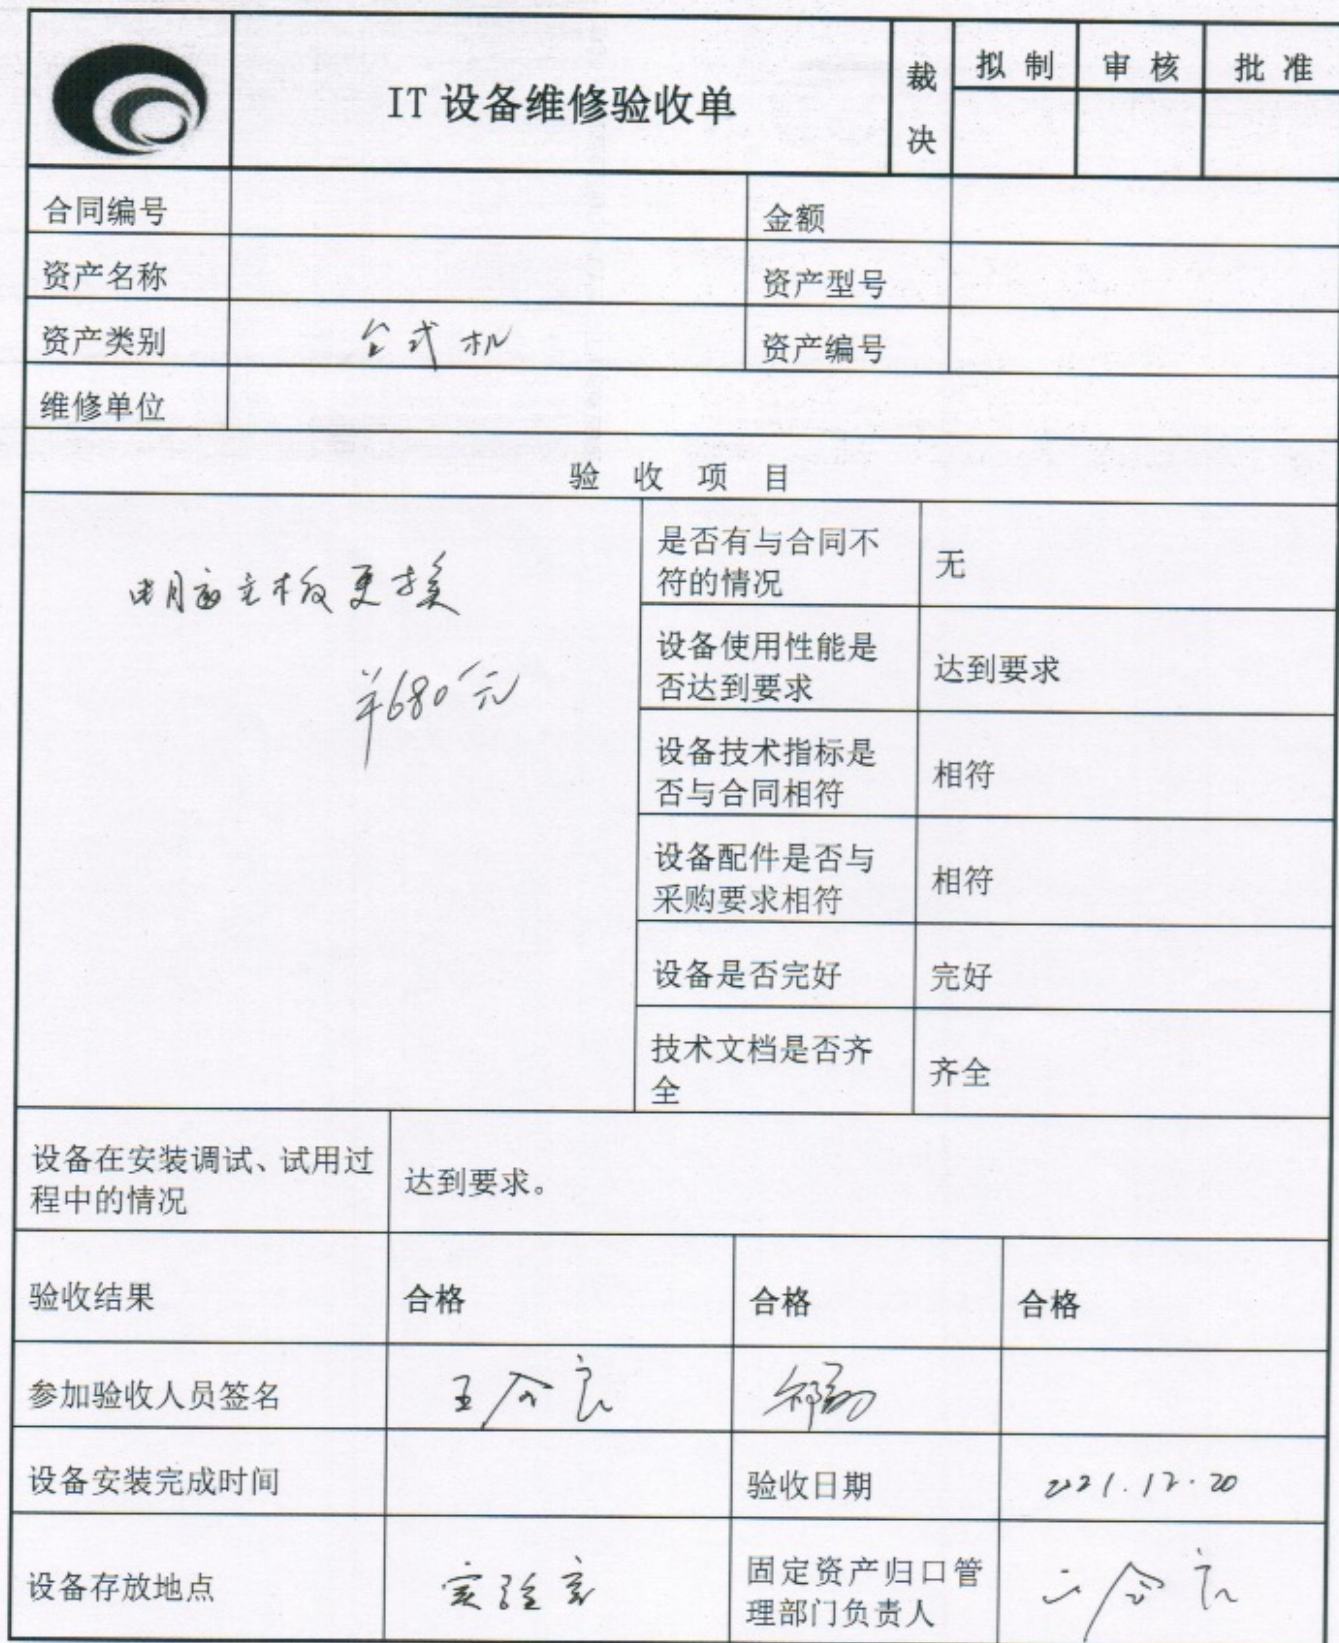 IT 设备维修验收单
裁决
拟 制
审 核
批 准
合同编号
金额
资产名称
资产型号
资产类别
台式机
资产编号
维修单位
验 收 项 目
电脑主板更换
￥680元
是否有与合同不
符的情况
无
设备使用性能是
否达到要求
达到要求
设备技术指标是
否与合同相符
相符
设备配件是否与
采购要求相符
相符
设备是否完好
完好
技术文档是否齐
全
齐全
设备在安装调试、试用过
程中的情况
达到要求。
验收结果
合格
合格
合格
参加验收人员签名
设备安装完成时间
验收日期
2021.12.20
设备存放地点
实验室
固定资产归口管
理部门负责人